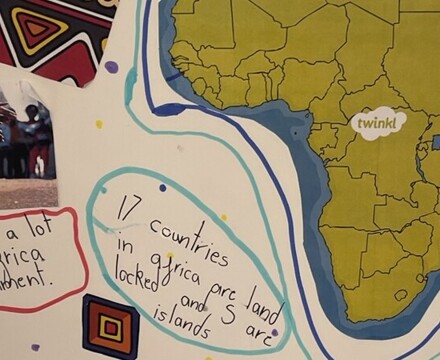 twinkl
17 countries
in africa are land
locked and 5 are
islands
a lot